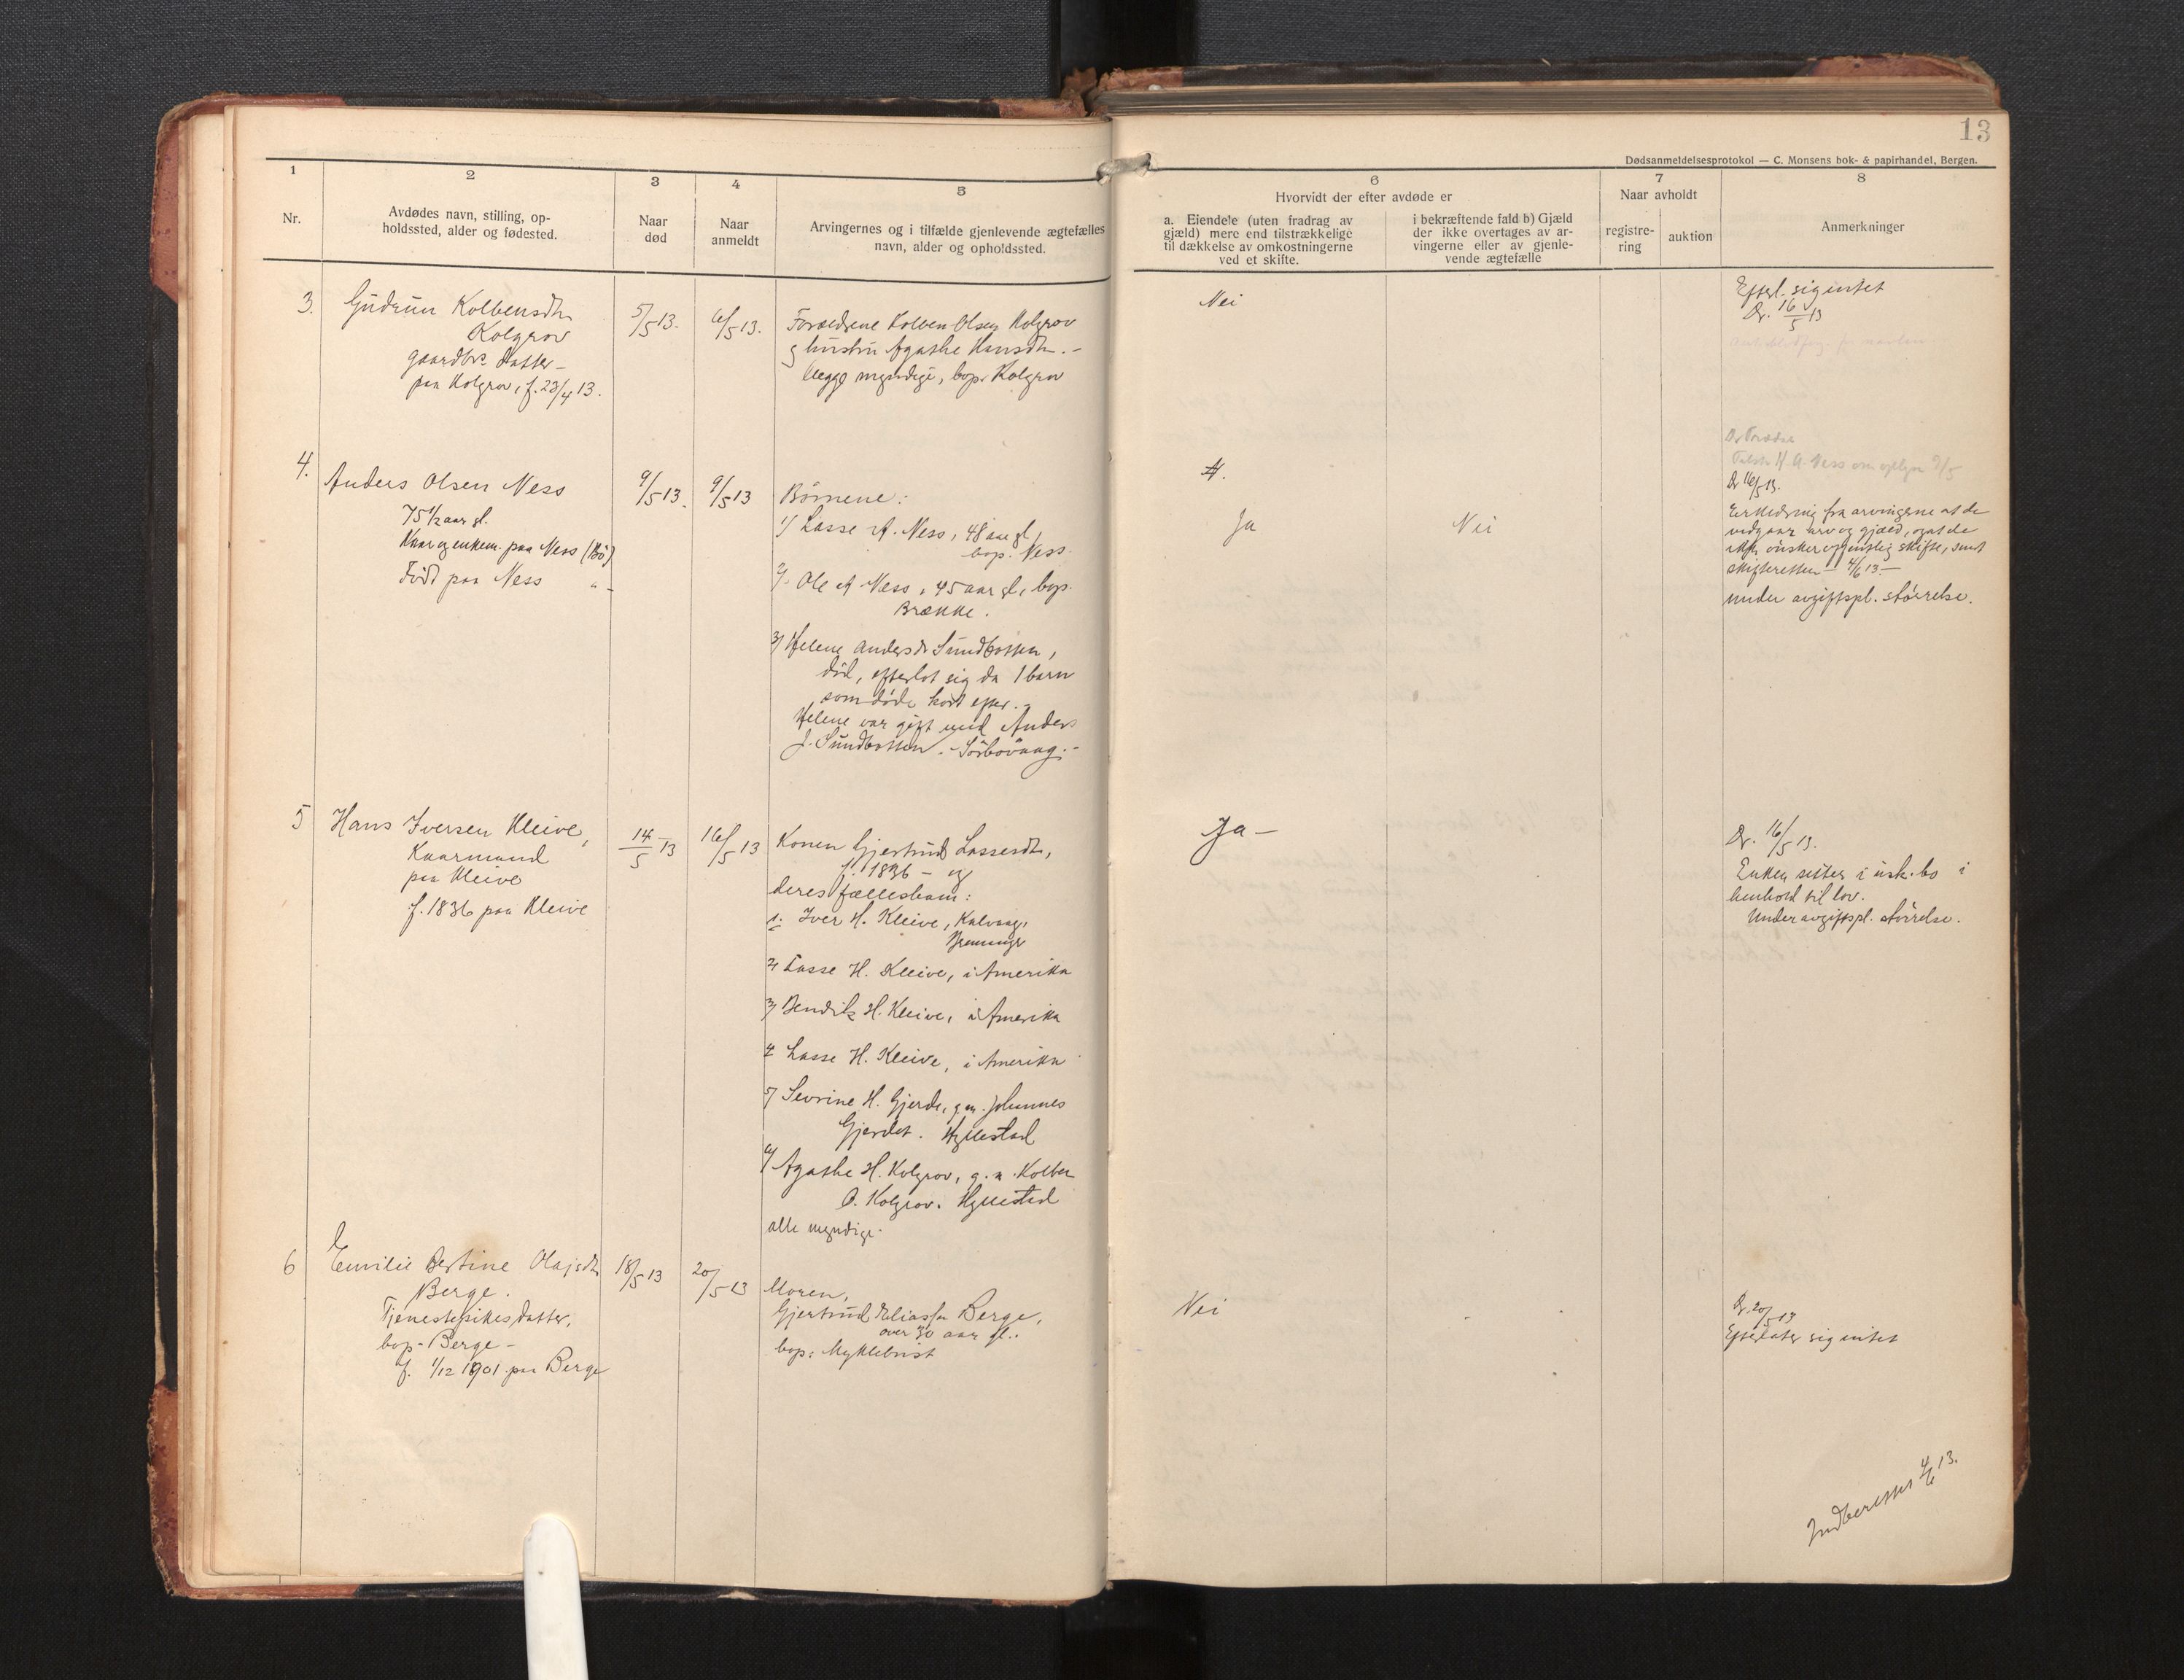 13
Dødsanmeldelsesprotokol — C. Monsens bok- & papirhandel, Bergen.
1
Nr.
2
Avdødes navn, stilling, op-
holdssted, alder og fødested.
3
Naar
død
4
Naar
anmeldt
5
Arvingernes og i tilfælde gjenlevende ægtefælles
navn, alder og opholdssted.
6
Hvorvidt der efter avdøde er
a. Eiendele (uten fradrag av
gjæld) mere end tilstrækkelige
til dækkelse av omkostningerne
ved et skifte.
i bekræftende fald b) Gjæld
der ikke overtages av ar-
vingerne eller av gjenle-
vende ægtefælle
7
Naar avholdt
registre-
ring
auktion
8
Anmerkninger
3.
Gudrun Kolbensdtr
Kolgrov
gaardbr. datter -
paa Kolgrov, f. 23/4 13.
5/5 13.
6/5 13.
Forældrene Kolben Olsen Kolgrov
og hustru Agathe Hansdtr. -
begge myndige, bop. Kolgrov
Nei
Efterl. sig intet
Dr. 16/5 13
4.
Anders Olsen Ness
75 1/2 aar gl.
Kaar og enkem. paa Ness (Bö)
Född paa Ness " -
9/5 13.
9/5 13
Börnene:
1/ Lasse A. Ness, 48 aar gl,
bop. Ness.
2/ Ole A Ness, 45 aar gl, bop.
Brække.
3/ Helene Andersdr Sundbotten,
död, efterlot sig da 1 barn
som döde kort efter. -
Helene var gift med Anders
J. Sundbotten. - Sörbövaag. -
Ja
Nei
Dr 16/5 13.
Erklæring fra arvingerne at de
vedgaar arv og gjæld, og at de
ikke önsker offentlig skifte, sendt
skifteretten - 4/6 13. -
Under avgiftspl. störrelse.
5
Hans Iversen Kleive,
Kaarmand
paa Kleive
f. 1836 paa Kleive
14/5 13
16/5 13
Konen Gjertrud Lassesdtr,
f. 1836 - og
deres fællesbarn:
1. Iver H. Kleive, Kalvaag,
Bremanger
2/ Lasse H. Kleive, i Amerika
3/ Bendik H. Kleive, i Amerika
4/ Lasse H. Kleive, i Amerika
5/ Sevrine H. Gjerde, g. m. Johannes
Gjerdet. Hyllestad
6/ Agathe H. Kolgrov, g. m. Kolben
O. Kolgrov. Hyllestad
alle myndige.
Ja -
Dr. 16/5 13.
Enken sitter i usk. bo i
henhold til lov.
Under avgiftspl. störrelse.
6
Emilie Bertine Olafsdtr
Berge.
Tjenestepikes datter,
bop - Berge -
f. 1/12 1901 paa Berge
18/5 13
20/5 13
Moren,
Gjertrud Eliasdr Berge,
over 30 aar gl.
bop: Myklebust
Nei
Dr. 20/5 13
Efterlater sig intet
Indberettet 4/6 13.